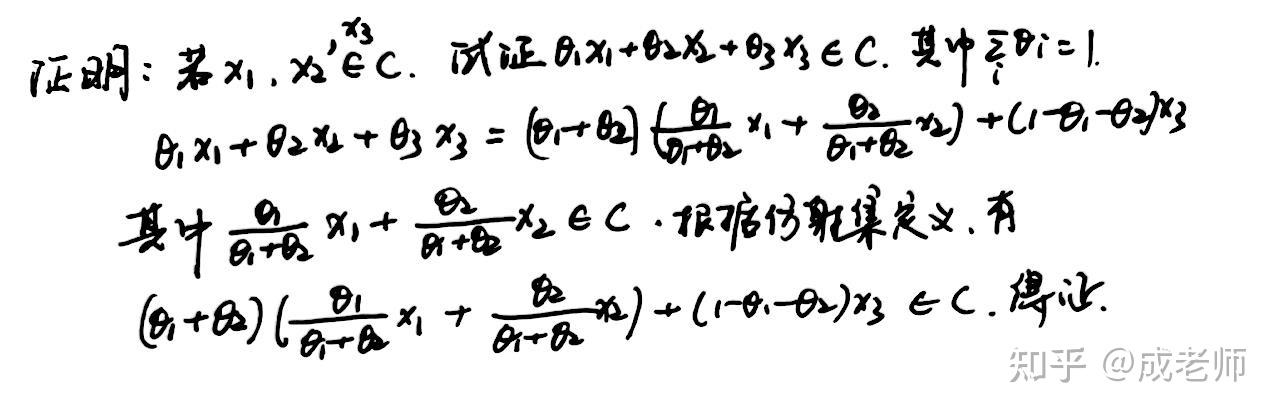 证明：若 x₁, x₂, x₃ ∈ C. 试证 θ₁x₁+θ₂x₂+θ₃x₃ ∈ C. 其中 ∑ᵢθᵢ=1.
θ₁x₁+θ₂x₂+θ₃x₃ = (θ₁+θ₂)(θ₁/(θ₁+θ₂) x₁ + θ₂/(θ₁+θ₂) x₂) + (1-θ₁-θ₂)x₃
其中 θ₁/(θ₁+θ₂) x₁ + θ₂/(θ₁+θ₂) x₂ ∈ C. 根据仿射集定义, 有
(θ₁+θ₂)(θ₁/(θ₁+θ₂) x₁ + θ₂/(θ₁+θ₂) x₂) + (1-θ₁-θ₂)x₃ ∈ C. 得证.
知乎 @成老师